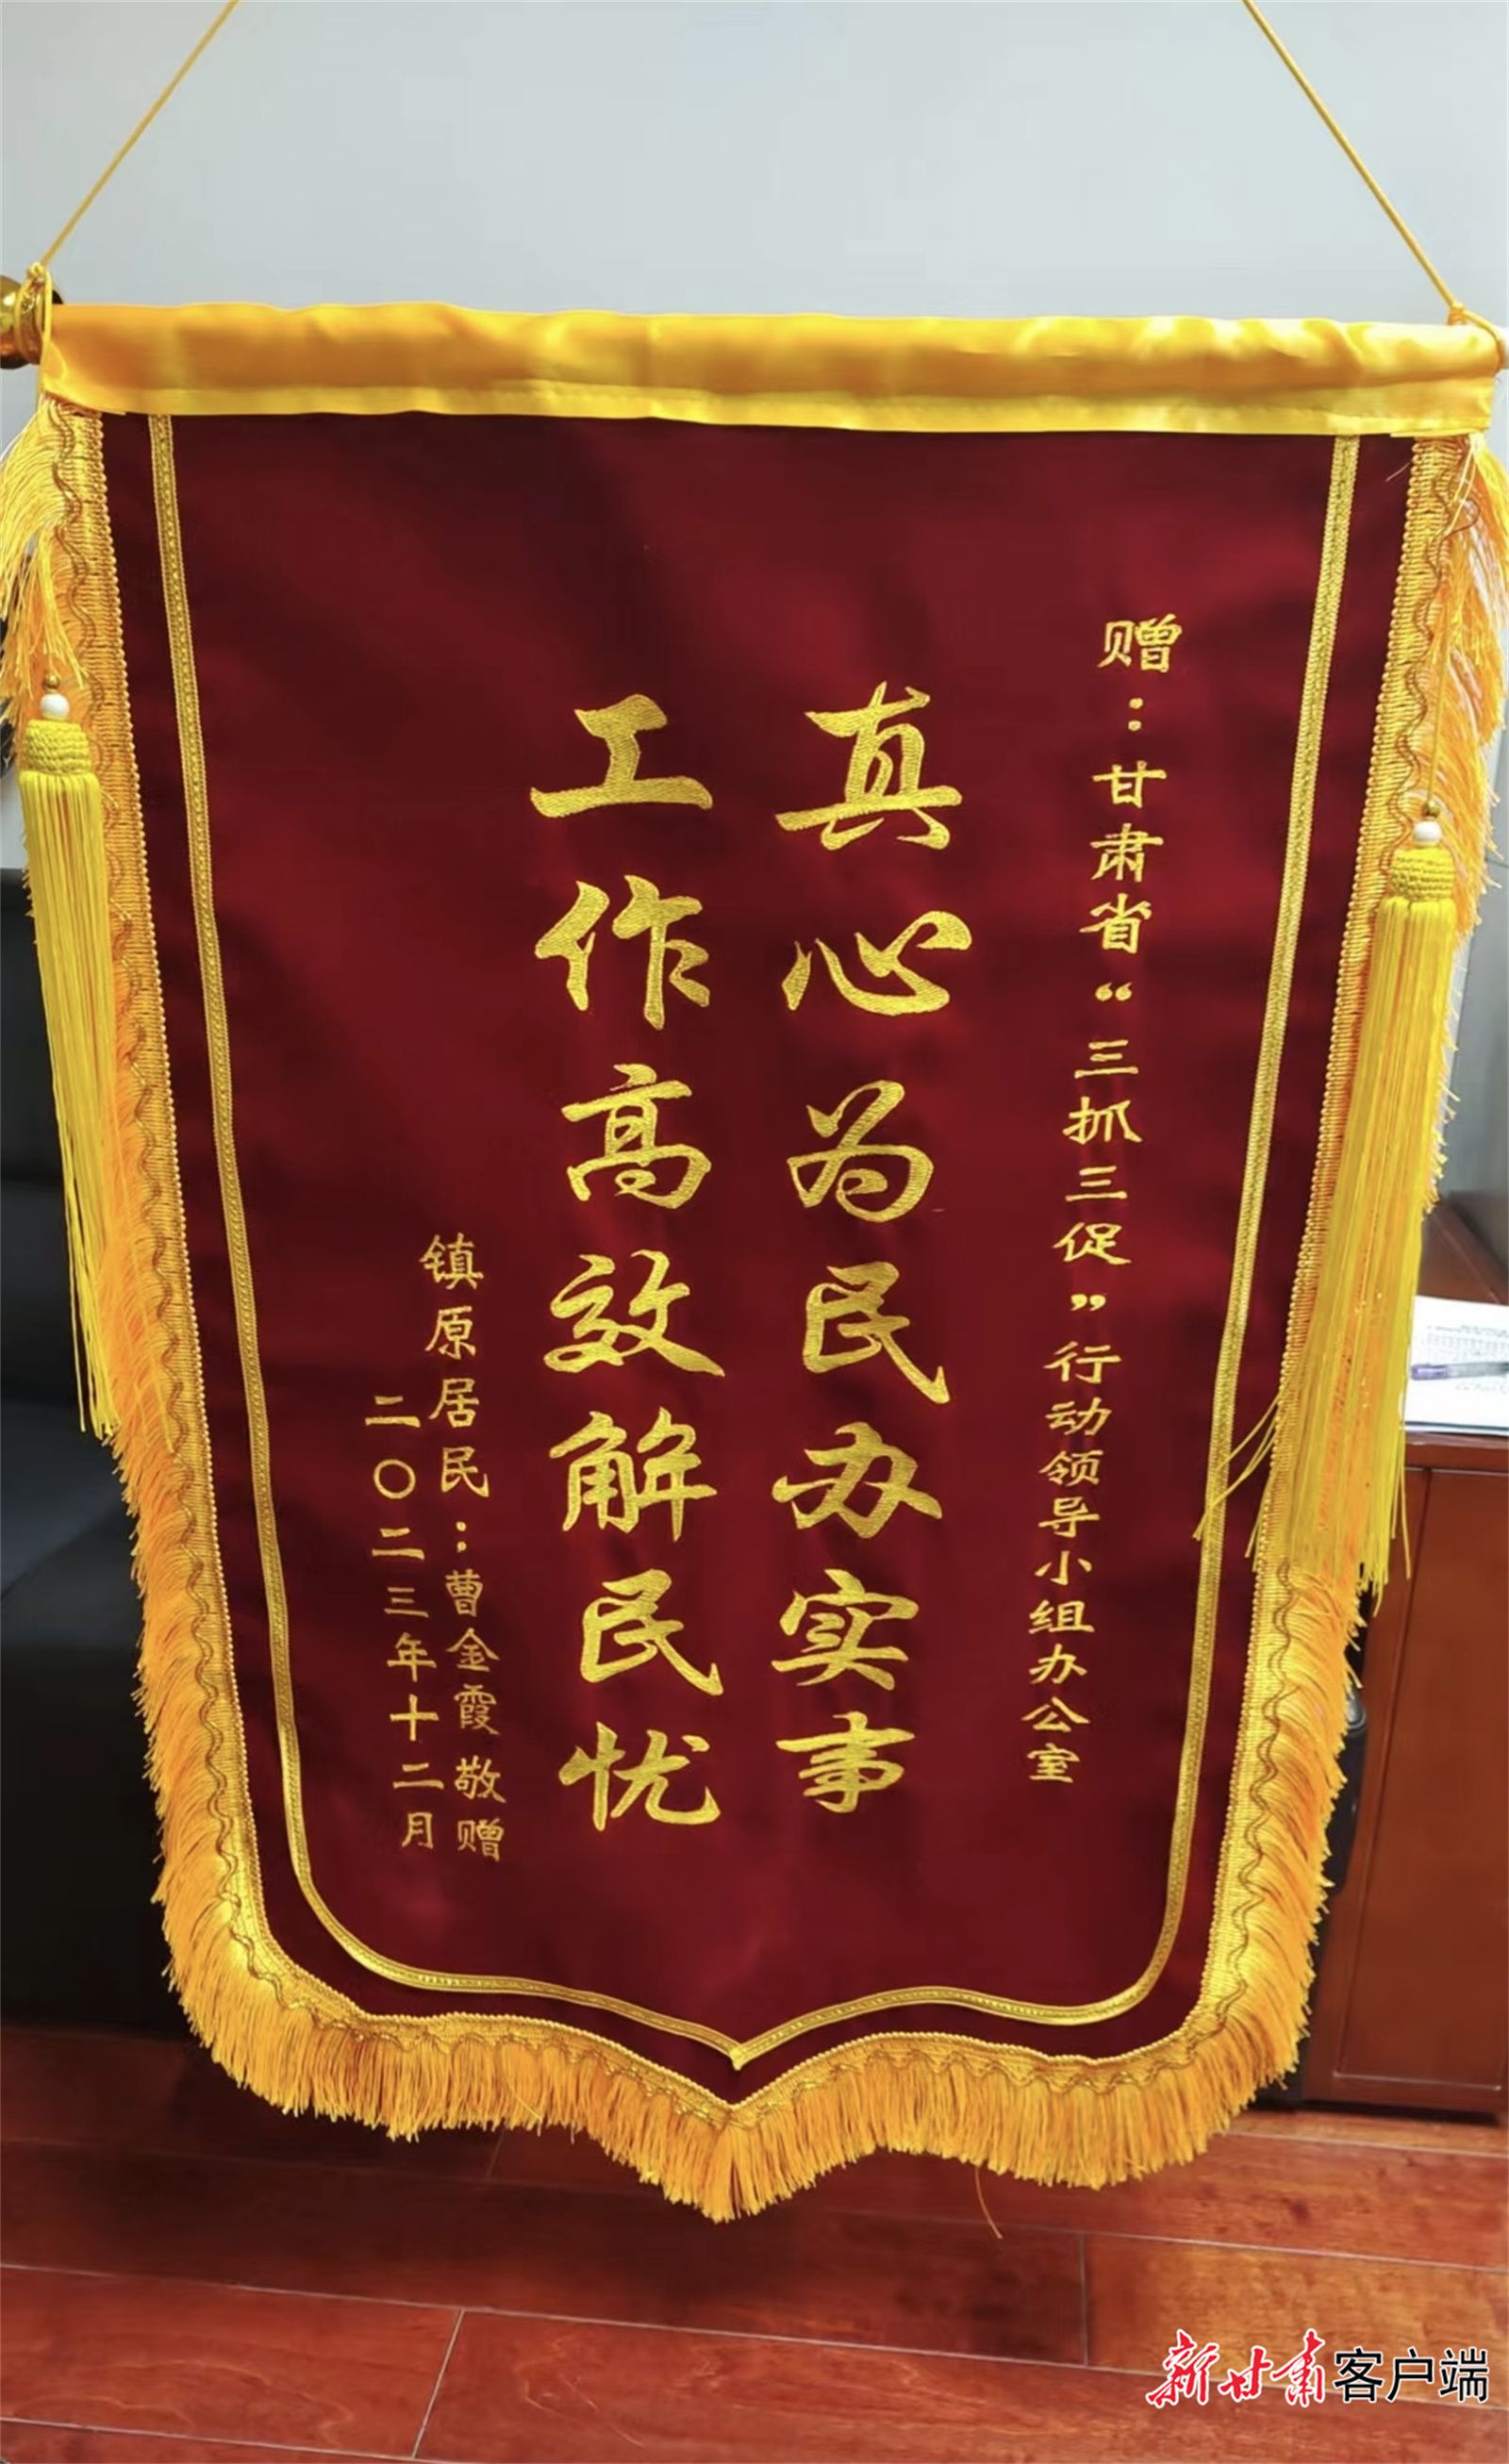 赠：甘肃省“三抓三促”行动领导小组办公室
真心为民办实事
工作高效解民忧
镇原居民：曹金霞敬赠
二〇二三年十二月
新甘肃客户端